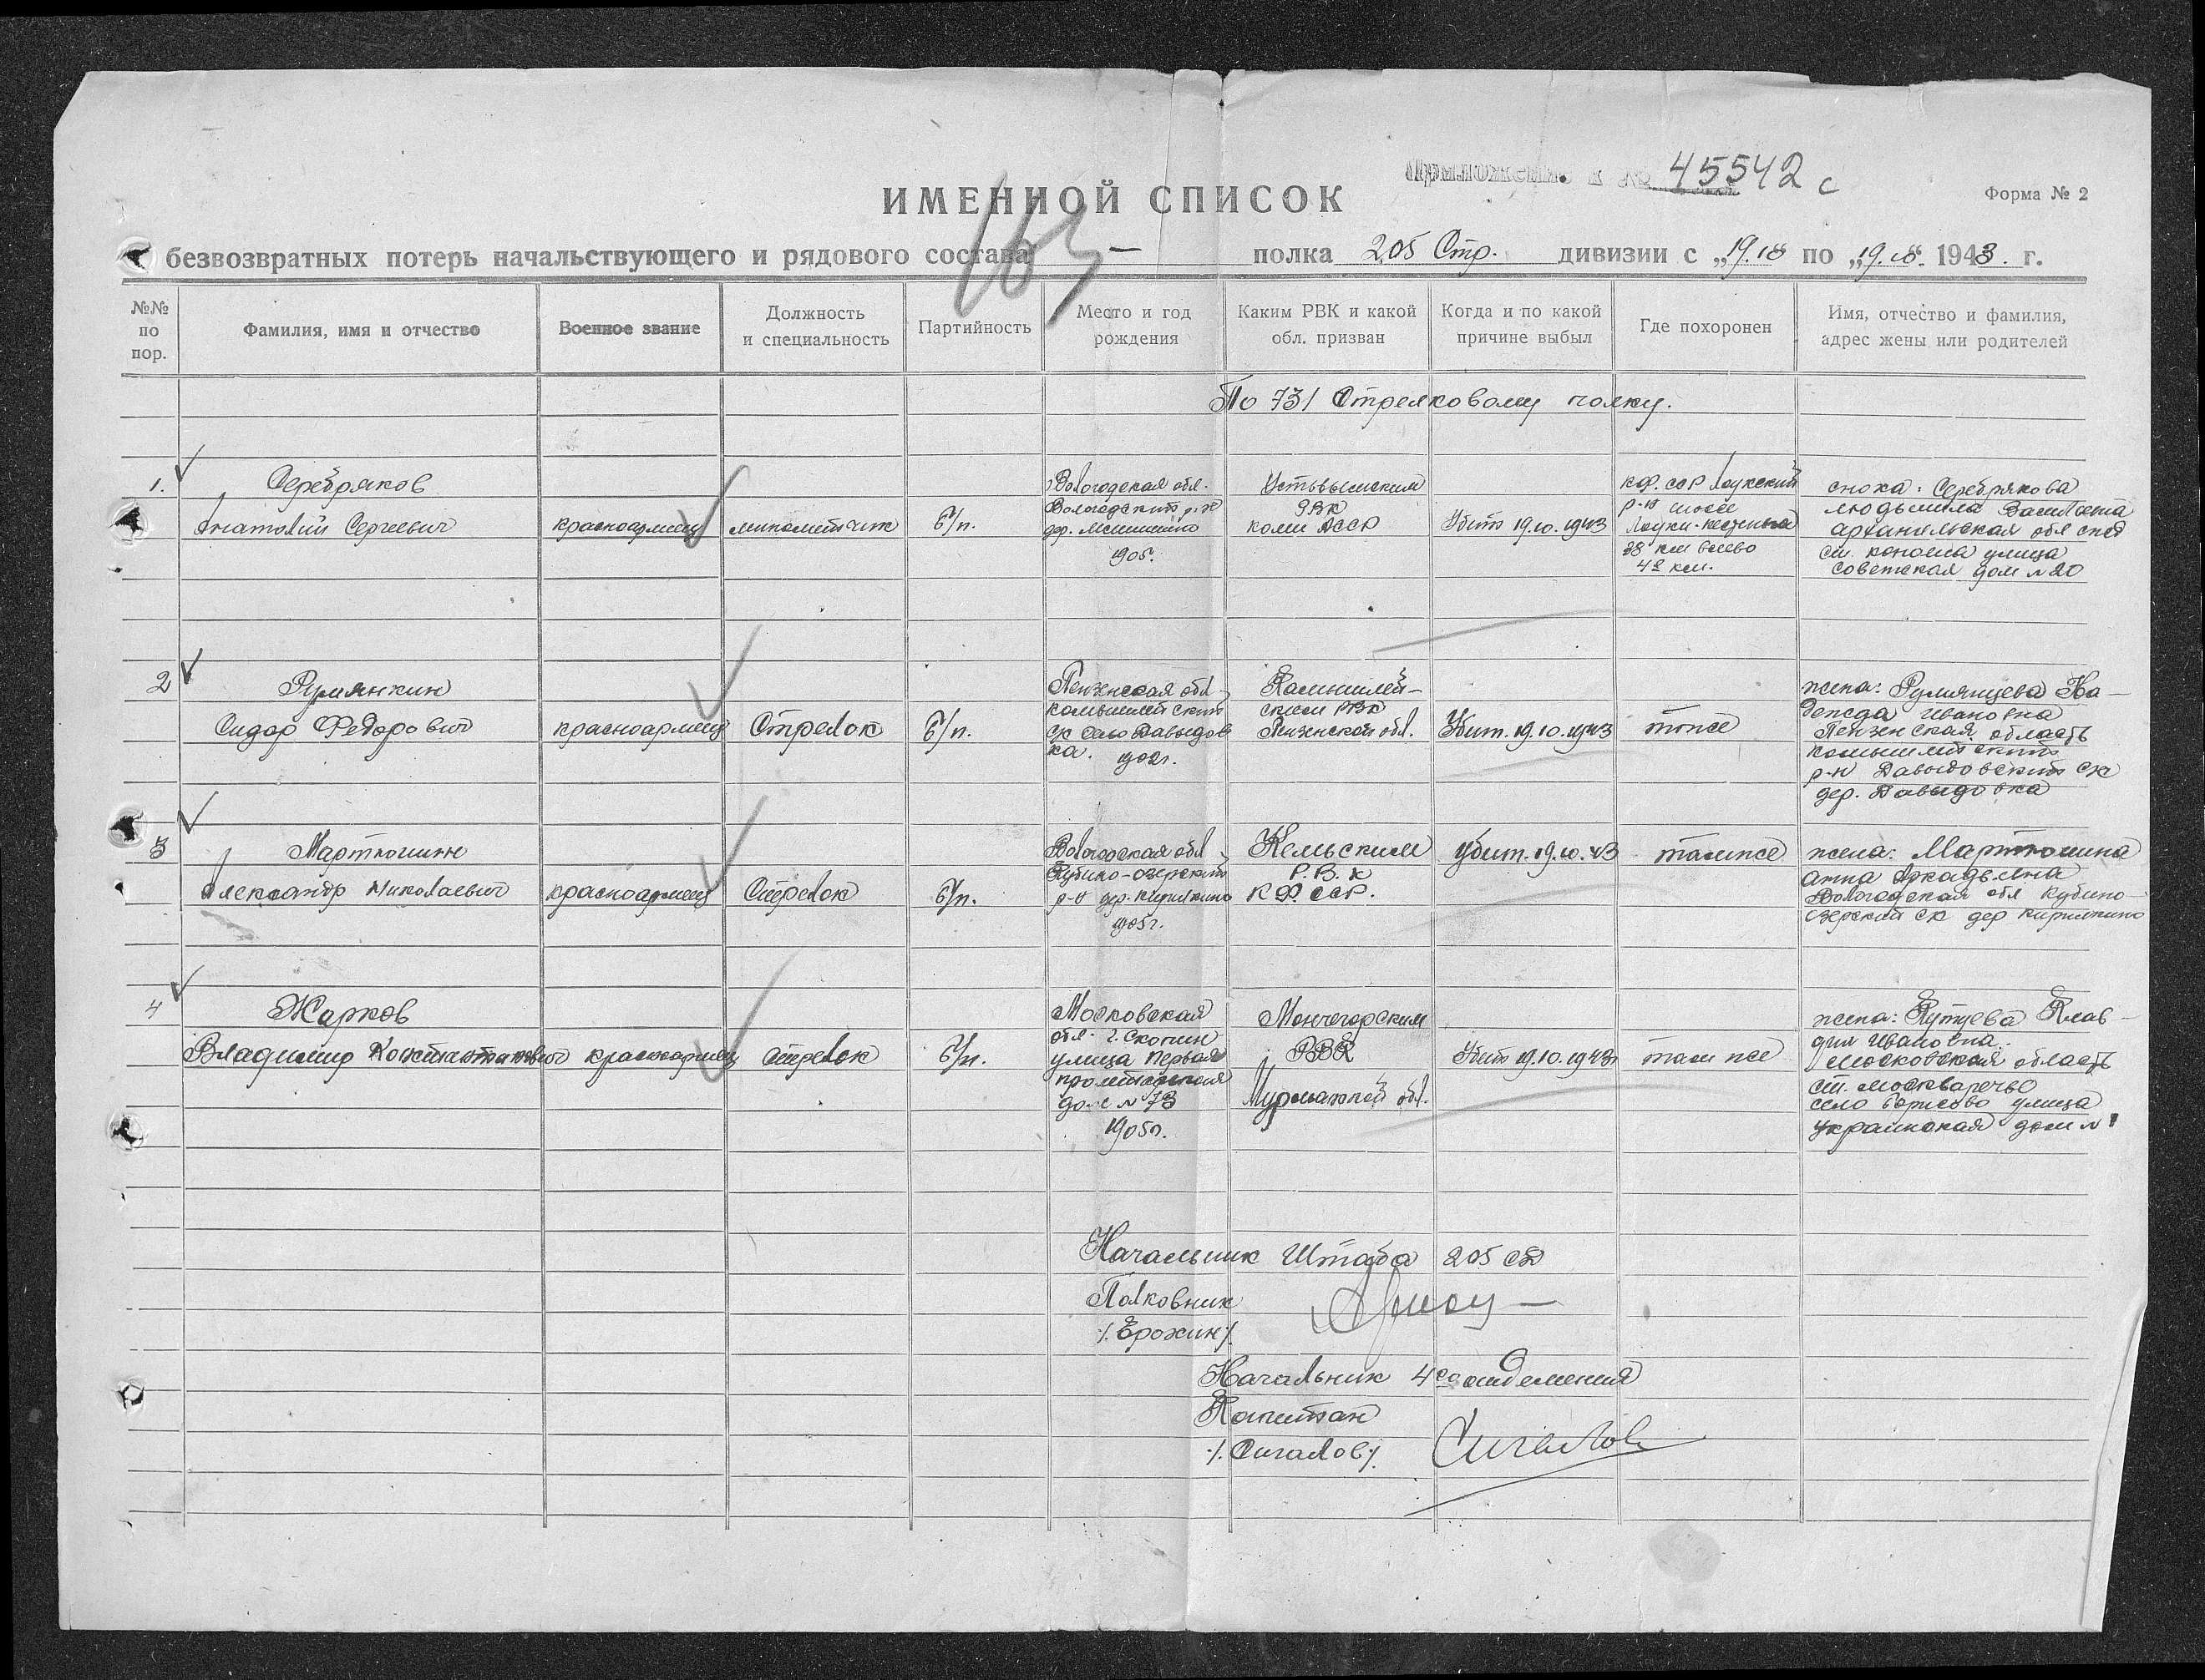 Приложение к № 45542 с
Форма № 2
ИМЕННОЙ СПИСОК
163
безвозвратных потерь начальствующего и рядового состава — полка 205 Стр. дивизии с „19.10 по „19.10. 1943. г.
№№ по пор.
Фамилия, имя и отчество
Военное звание
Должность и специальность
Партийность
Место и год рождения
Каким РВК и какой обл. призван
Когда и по какой причине выбыл
Где похоронен
Имя, отчество и фамилия, адрес жены или родителей
По 731 Стрелковому полку.
1.
Серебряков
Анатолий Сергеевич
красноармеец
минометчик
б/п.
Вологодская обл.
Вологодский р-н
дер.
1905г.
Устьвымским
РВК
коми АССР
Убит 19.10.1943
КФ. ССР Лоухский
р-н шоссе
Лоухи-кестеньга
38 км влево
42 км.
Серебрякова
людьмила
архангельская обл
ст. коноша улица
советская дом №20
2
Румянкин
Сидор Федорович
красноармеец
Стрелок
б/п.
Пензенская обл
камышлейский
с/с село Давыдов
ка. 1902г.
Камышлей-
ским РВК
Пензенской обл.
Убит. 19.10.1943
тоже
жена: Румянцева На-
дежда Ивановна
Пензенская область
камышлейский
р-н Давыдовский с/с
дер. Давыдовка
3
Мартюшин
Александр Николаевич
красноармеец
Стрелок
б/п.
Вологодская обл
Кубино-озерский
р-н дер. Кирилкино
1905г.
Кемьским
Р.В.К
КФ ССР.
убит. 19.10.43
там же
жена: Мартюшина
анна Аркадьевна
Вологодская обл Кубино-
озерский с/с дер Кирилкино
4
Жарков
Владимир Константинович
красноармеец
Стрелок
б/п.
Московская
обл. г. Скопин
улица Первая
пролетарская
дом № 73
1905г.
Мончегорским
РВК
Мурманской обл.
Убит 19.10.1943г
там же
жена: Клав-
дия Ивановна
Московская область
ст. москваречье
село Борисово улица
украинская дом № 1
Начальник Штаба 205 сд
Полковник
/. Ерохин /.
Начальник 4го отделения
Капитан
/. Сигалов /. Сигалов